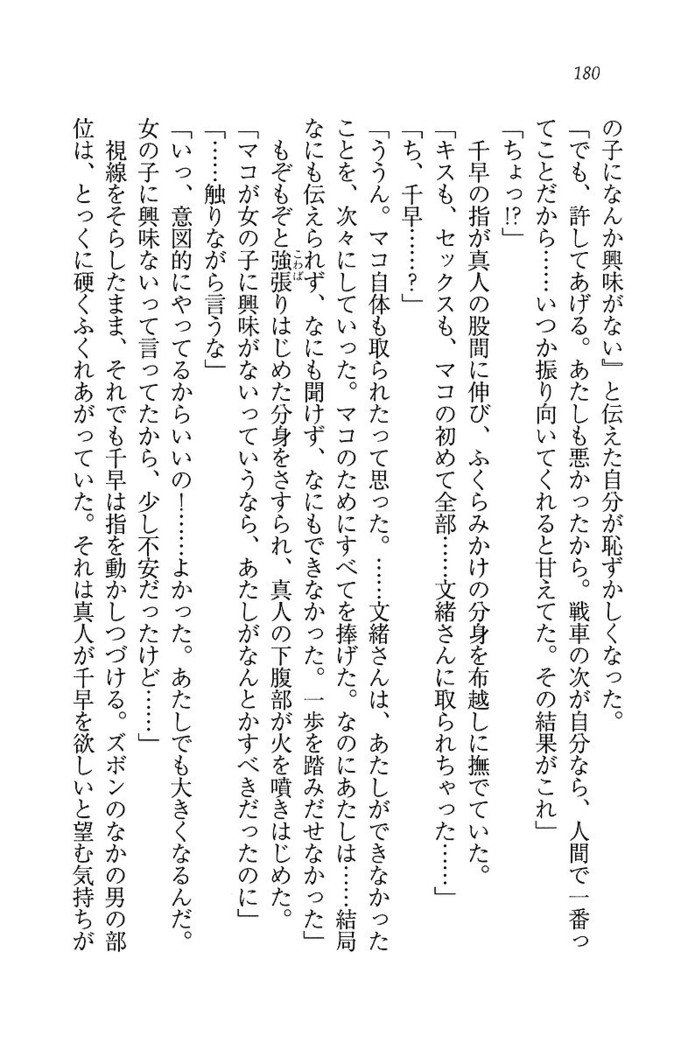 180
の子になんか興味がない』と伝えた自分が恥ずかしくなった。
「でも、許してあげる。あたしも悪かったから。戦車の次が自分なら、人間で一番っ
てことだから……いつか振り向いてくれると甘えてた。その結果がこれ」
「ちょっ!?」
千早の指が真人の股間に伸び、ふくらみかけの分身を布越しに撫でていた。
「キスも、セックスも、マコの初めて全部……文緒さんに取られちゃった……」
「ち、千早……？」
「ううん。マコ自体も取られたって思った。……文緒さんは、あたしができなかった
ことを、次々にしていった。マコのためにすべてを捧げた。なのにあたしは……結局
なにも伝えられず、なにも聞けず、なにもできなかった。一歩を踏みだせなかった」
もぞもぞと強張りはじめた分身をさすられ、真人の下腹部が火を噴きはじめた。
「マコが女の子に興味がないっていうなら、あたしがなんとかすべきだったのに」
「……触りながら言うな」
「いっ、意図的にやってるからいいの！……よかった。あたしでも大きくなるんだ。
女の子に興味ないって言ってたから、少し不安だったけど……」
視線をそらしたまま、それでも千早は指を動かしつづける。ズボンのなかの男の部
位は、とっくに硬くふくれあがっていた。それは真人が千早を欲しいと望む気持ちが